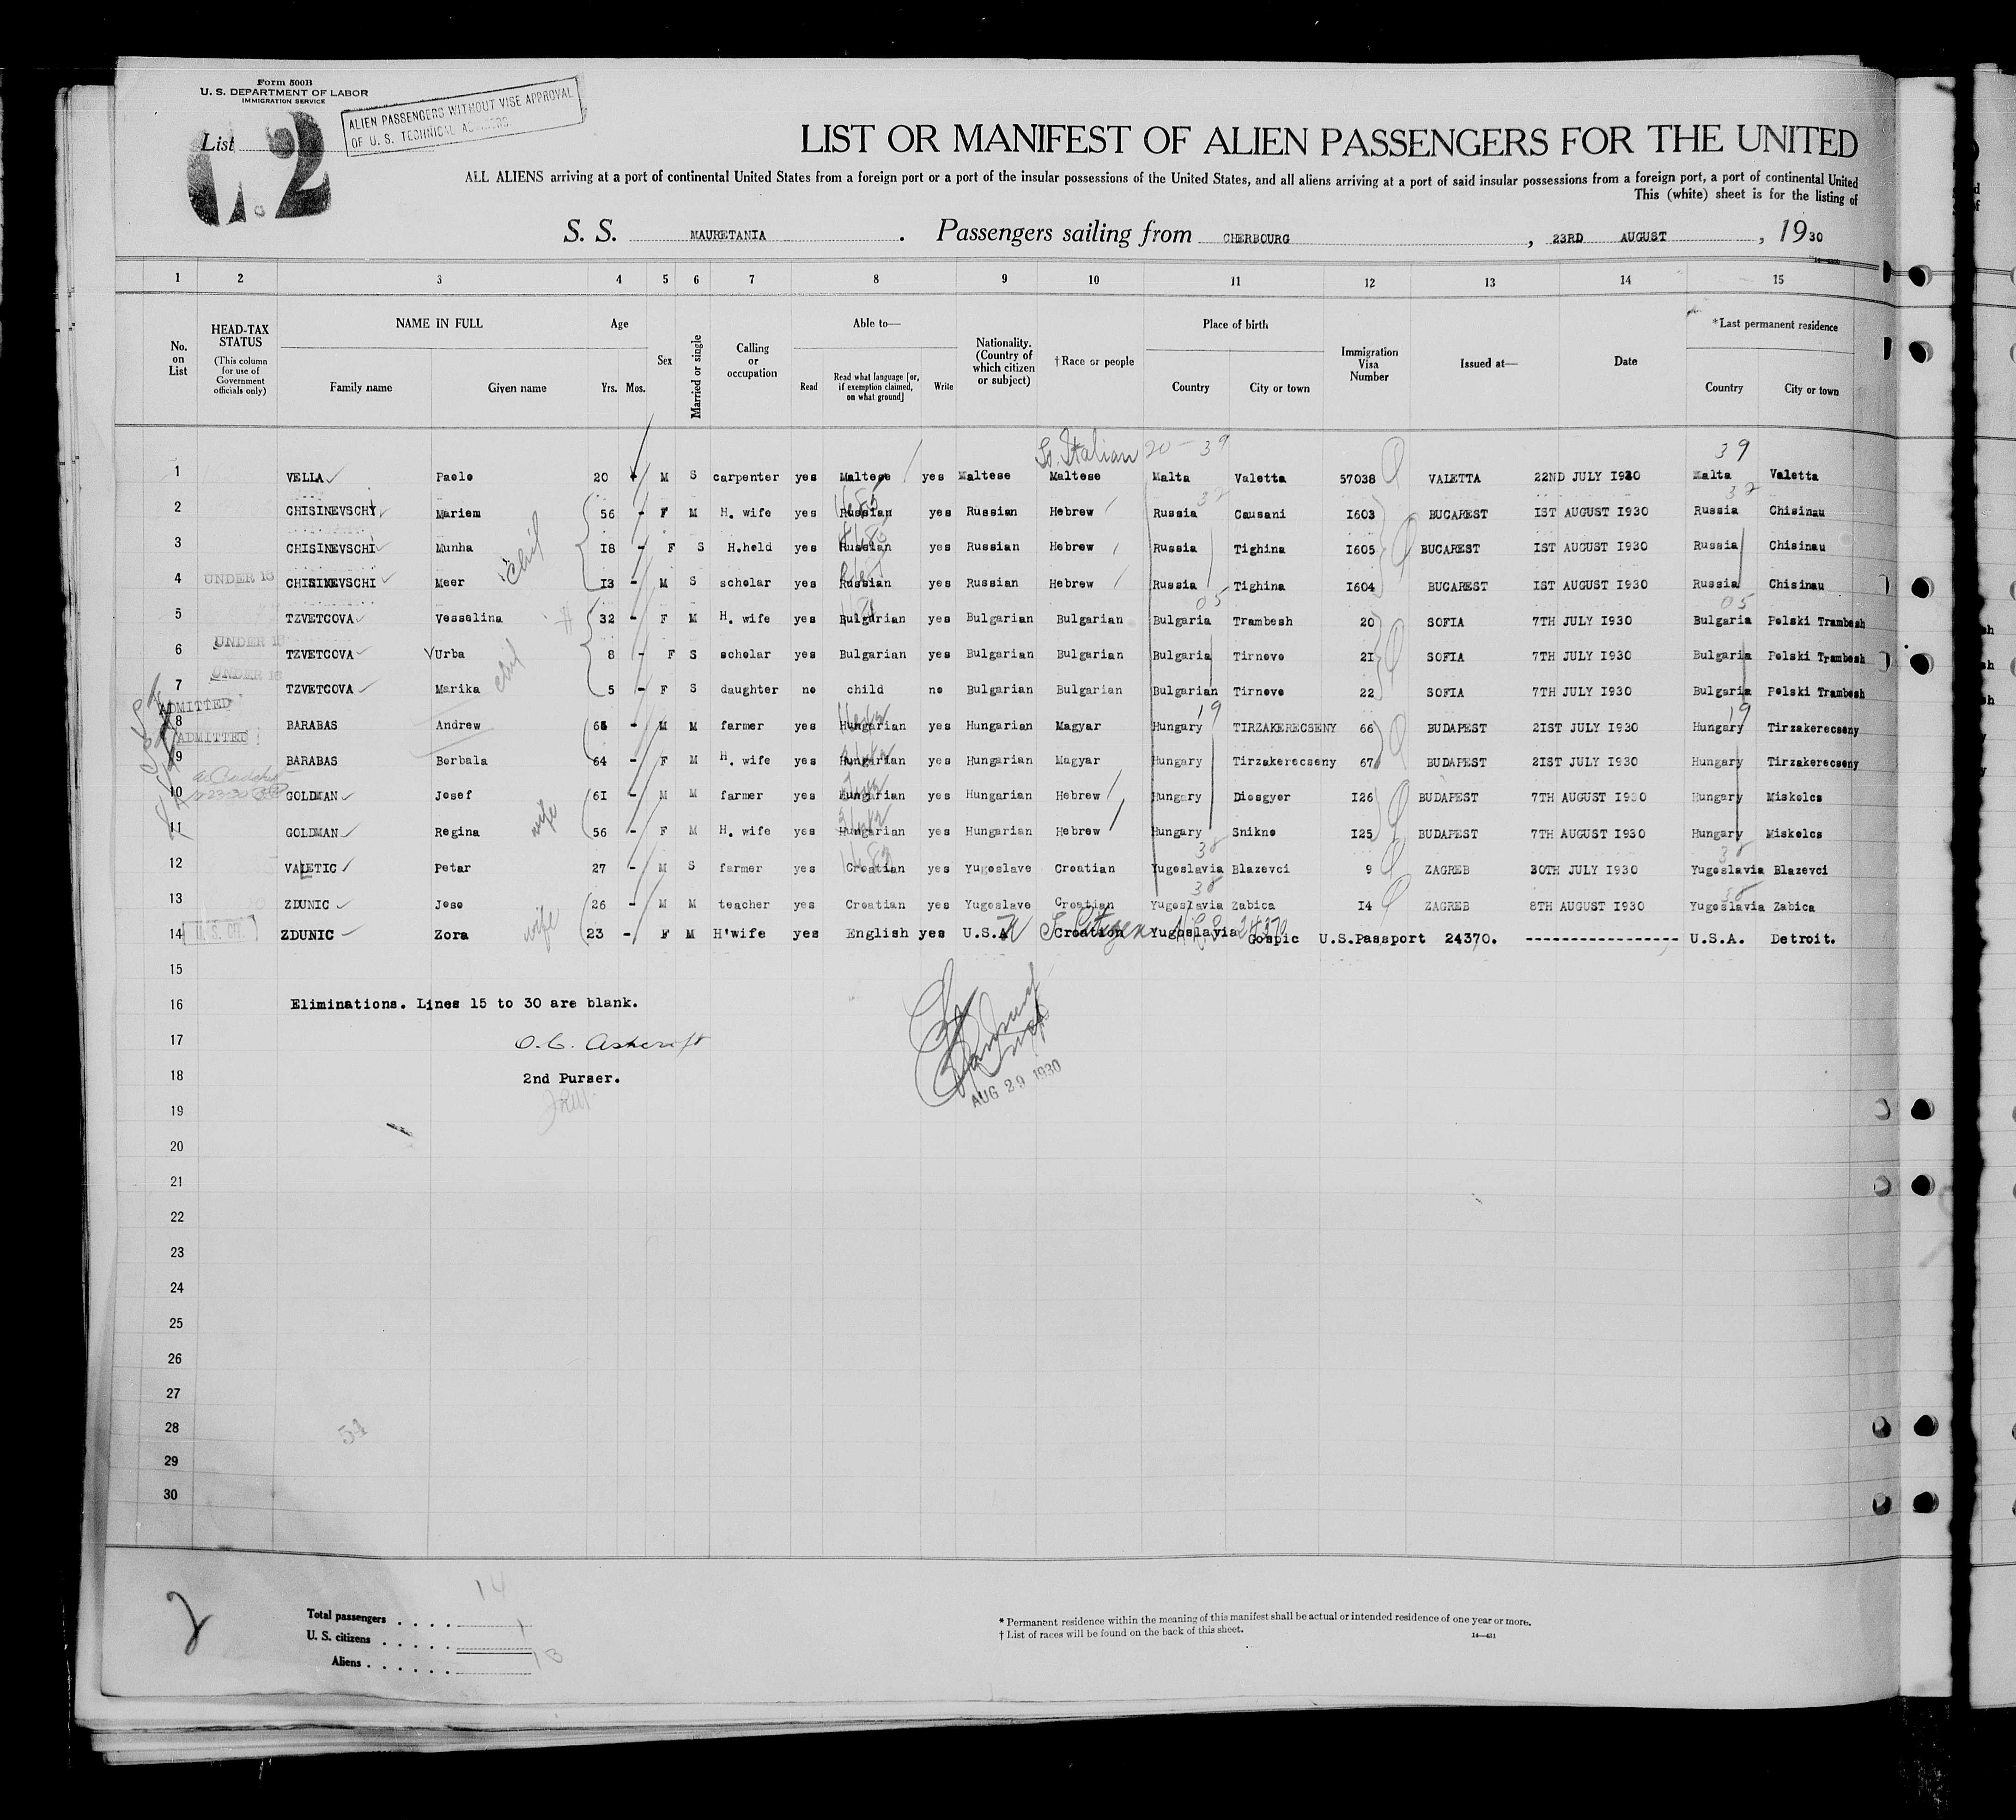 Form 500B
U. S. DEPARTMENT OF LABOR
IMMIGRATION SERVICE
List
2
ALIEN PASSENGERS WITHOUT VISE APPROVAL
OF U. S. TECHNICAL ADVISERS.
LIST OR MANIFEST OF ALIEN PASSENGERS FOR THE UNITED
ALL ALIENS arriving at a port of continental United States from a foreign port or a port of the insular possessions of the United States, and all aliens arriving at a port of said insular possessions from a foreign port, a port of continental United
This (white) sheet is for the listing of
S. S. MAURETANIA. Passengers sailing from CHERBOURG, 23RD AUGUST, 1930
1 2 3 4 5 6 7 8 9 10 11 12 13 14 15
No. on List
HEAD-TAX STATUS (This column for use of Government officials only)
NAME IN FULL Family name Given name
Age Yrs. Mos.
Sex
Married or single
Calling or occupation
Able to— Read Read what language [or, if exemption claimed, on what ground] Write
Nationality. (Country of which citizen or subject)
†Race or people
Place of birth Country City or town
Immigration Visa Number
Issued at—
Date
*Last permanent residence Country City or town
So. Italian 20 - 39 39
1 VELLA Paolo 20 M S carpenter yes Maltese yes Maltese Maltese Malta Valetta 57038 VALETTA 22ND JULY I930 Malta Valetta
2 CHISINEVSCHY Mariem 56 - F M H. wife yes Russian yes Russian Hebrew Russia Causani I603 BUCAREST IST AUGUST I930 Russia Chisinau
3 CHISINEVSCHI Munha I8 - F S H.hold yes Russian yes Russian Hebrew Russia Tighina I605 BUCAREST IST AUGUST I930 Russia Chisinau
4 UNDER 16 CHISINEVSCHI Meer I3 - M S scholar yes Russian yes Russian Hebrew Russia Tighina I604 BUCAREST IST AUGUST I930 Russia Chisinau
5 TZVETCOVA Vesselina 32 - F M H. wife yes Bulgarian yes Bulgarian Bulgarian Bulgaria Trambesh 20 SOFIA 7TH JULY I930 Bulgaria Polski Trambesh
6 UNDER 16 TZVETCOVA Urba 8 - F S scholar yes Bulgarian yes Bulgarian Bulgarian Bulgaria Tirnovo 2I SOFIA 7TH JULY I930 Bulgaria Polski Trambesh
7 UNDER 16 TZVETCOVA Marika 5 - F S daughter no child no Bulgarian Bulgarian Bulgarian Tirnovo 22 SOFIA 7TH JULY I930 Bulgaria Polski Trambesh
8 ADMITTED BARABAS Andrew - M M farmer yes Hungarian yes Hungarian Magyar Hungary TIRZAKERECSENY 66 BUDAPEST 2IST JULY I930 Hungary Tirzakerecseny
9 ADMITTED BARABAS Borbala 64 - F M H. wife yes Hungarian yes Hungarian Magyar Hungary Tirzakerecseny 67 BUDAPEST 2IST JULY I930 Hungary Tirzakerecseny
10 GOLDMAN Josef 6I - M M farmer yes Hungarian yes Hungarian Hebrew Hungary Diosgyor I26 BUDAPEST 7TH AUGUST I930 Hungary Miskolcs
11 GOLDMAN Regina wife 56 - F M H. wife yes Hungarian yes Hungarian Hebrew Hungary Snikno I25 BUDAPEST 7TH AUGUST I930 Hungary Miskolcs
12 VALETIC Petar 27 - M S farmer yes Croatian yes Yugoslave Croatian Yugoslavia Blazevci 9 ZAGREB 30TH JULY I930 Yugoslavia Blazevci
13 ZDUNIC Joso 26 - M M teacher yes Croatian yes Yugoslave Croatian Yugoslavia Zabica I4 ZAGREB 8TH AUGUST I930 Yugoslavia Zabica
14 U.S. CIT. ZDUNIC Zora wife 23 - F M H'wife yes English yes U.S.A Croation Yugoslavia Gospic U.S.Passport 24370. ---------------- U.S.A. Detroit.
15
16 Eliminations. Lines 15 to 30 are blank.
17 O. C. Ashcroft
18 2nd Purser.
AUG 29 1930
19
20
21
22
23
24
25
26
27
28 54
29
30
2
Total passengers . . . . 14
U. S. citizens . . . . . 1
Aliens . . . . . . 13
* Permanent residence within the meaning of this manifest shall be actual or intended residence of one year or more.
† List of races will be found on the back of this sheet.
14—431